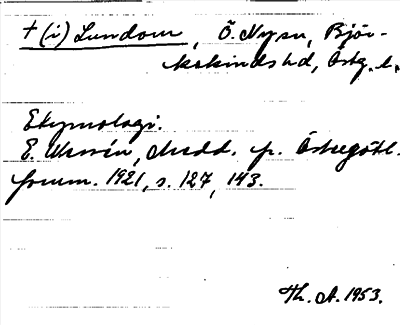 † (i) Lundom, Ö. Ny sn, Björ-
kekinds hd, Östg. l.
Etymologi.
E. Wessén, Medd. fr. Östergötl.
fornm. 1921, s. 127, 143.
Th. A. 1953.